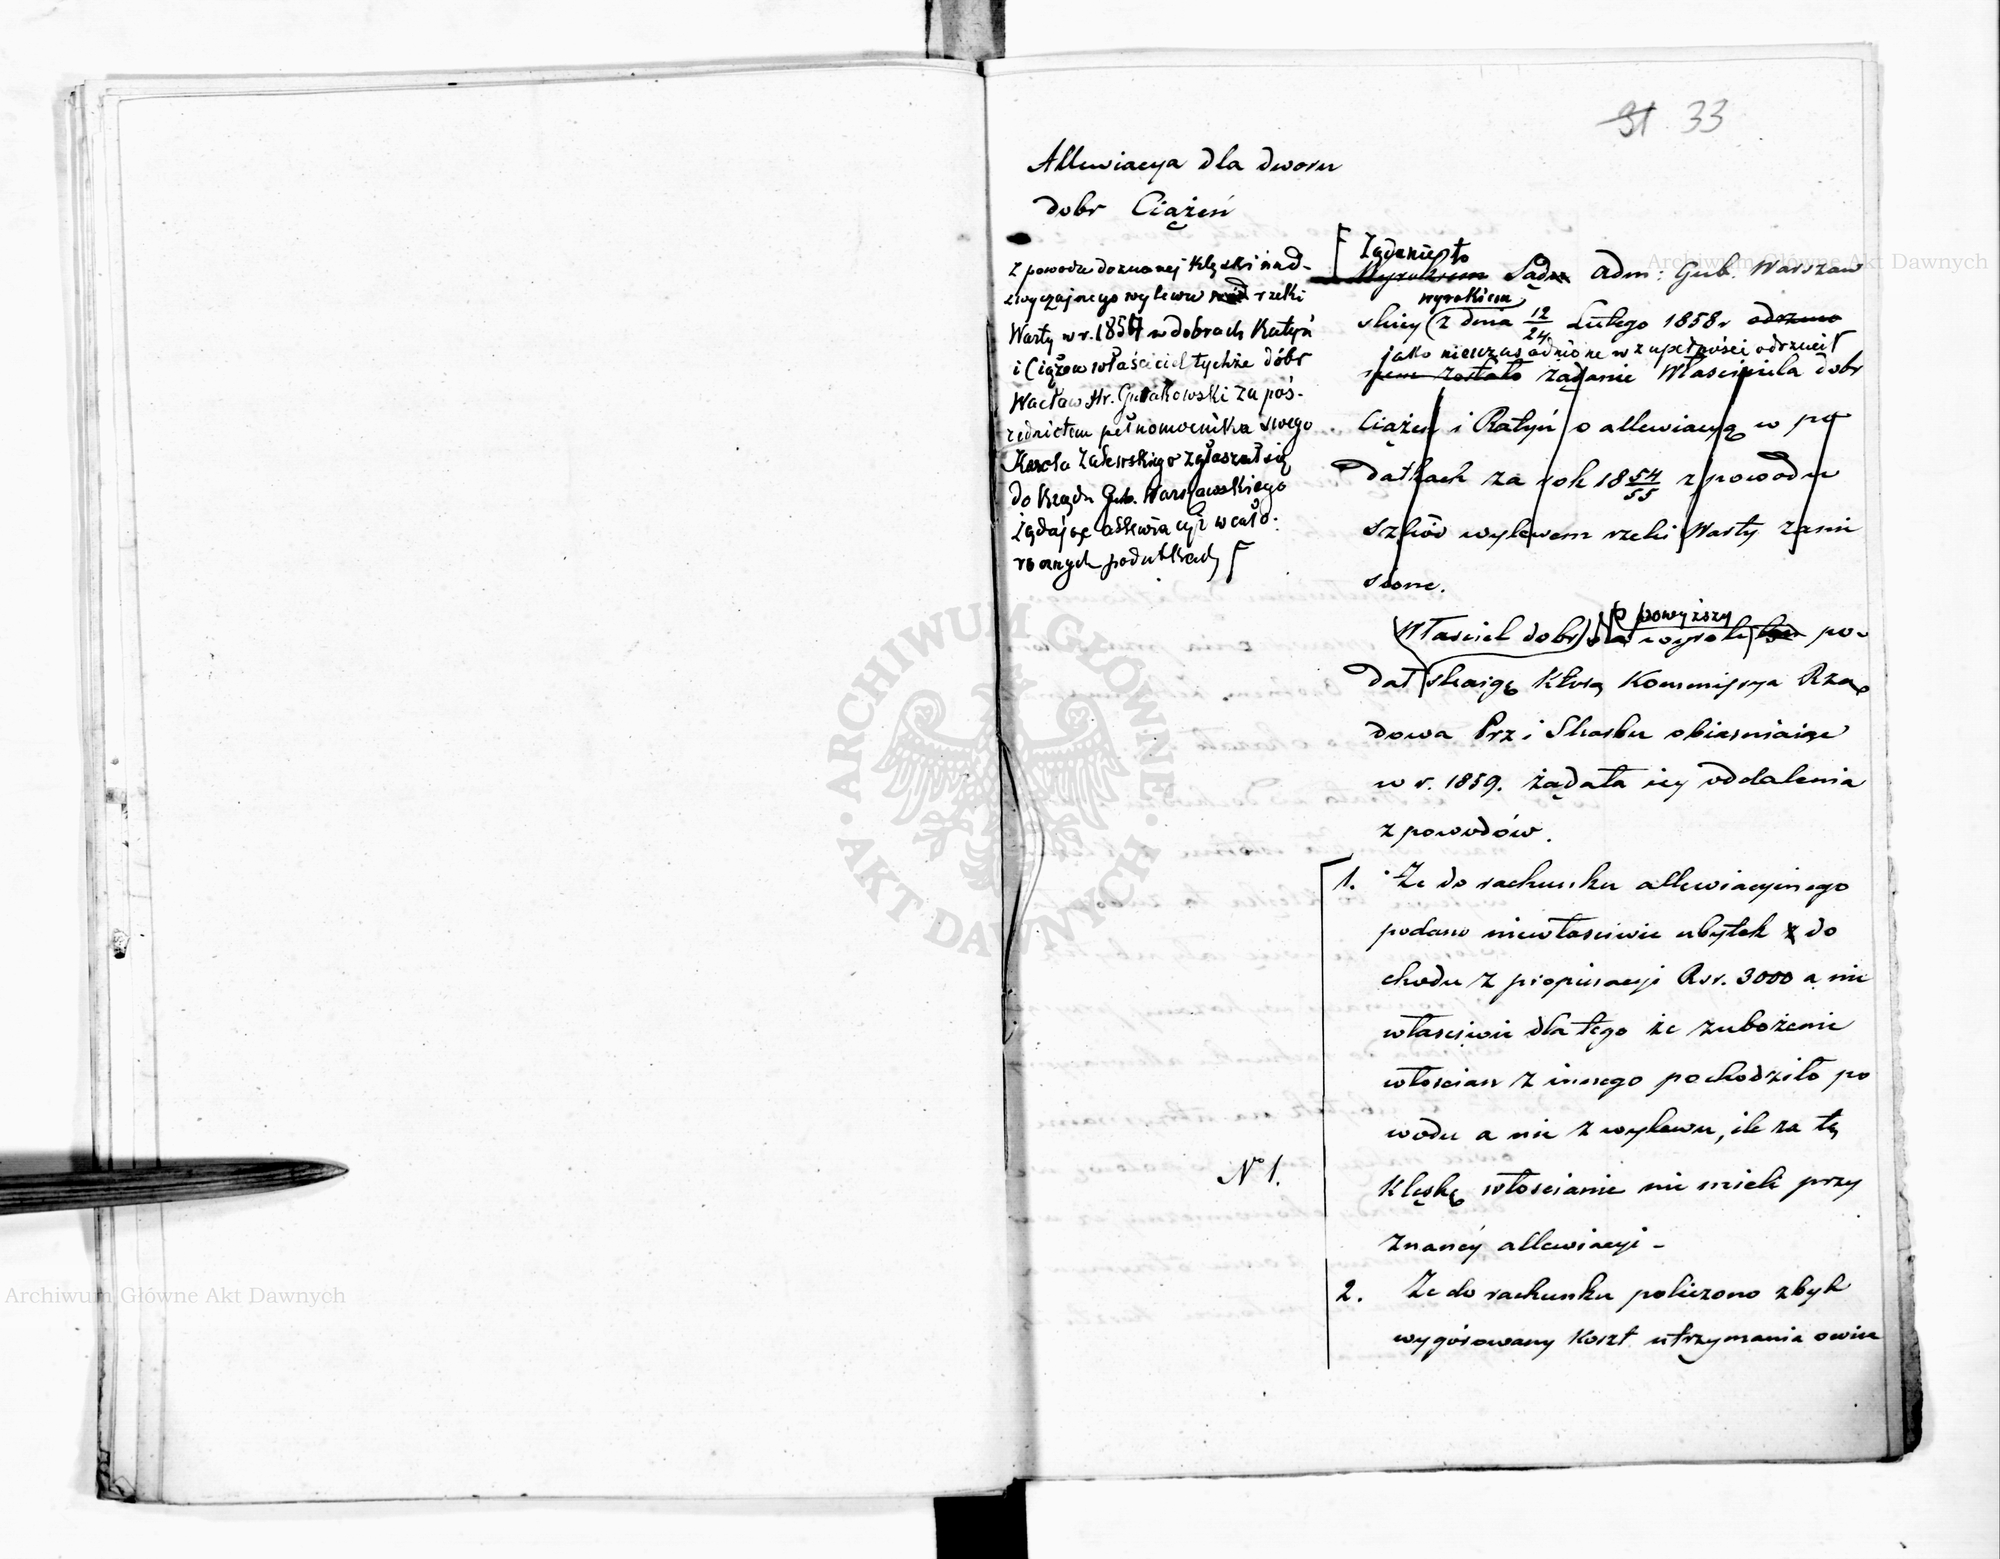 31 33
Allewiacya dla dworu
dobr Ciążeń
z powodu doznanej klęski nad-
zwyczajnego wylewu wód rzeki
Warty w r. 1854 w dobrach Ratyń
i Ciążeń właściciel tychże dóbr
Wacław Hr. Gutakowski za poś-
rednictwem pełnomocnika swego
Karola Zalewskiego zgłaszał się
do Rządu Gub. Warszawskiego
żądając allewiacyi w cało-
rocznych podatkach
Żądanie to
Wyrokiem Sądu Adm: Gub. Warszaw
wyrokiem
skiey z dnia 12/24 Lutego 1858 r odrzuco
jako nieuzasadnione w zupełności odrzucił
nem zostało żądanie Właściciela dobr
Ciążeń i Ratyń o allewiacyę w po
datkach za rok 18 54/55 z powodu
szkód wylewem rzeki Warty zrzą
dzone.
powyższy
Właściciel dobr na wyrok ten po-
dał skargę którą Kommissya Rzą
dowa Prz i Skarbu obiaśniaiąc
w r. 1859. żądała iey oddalenia
z powodów.
1. Że do rachunku allewiacyinego
podano niewłaściwie ubytek z do
chodu z propinacyi Rsr. 3000 a nie
właściwie dla tego że zubożenie
włościan z innego pochodziło po
wodu a nie z wylewu, ile za tę
klęskę włościanie nie mieli przy
znaney allewiacyi -
N° 1.
2. Że do rachunku policzono zbyt
wygórowany koszt utrzymania owiec
Archiwum Główne Akt Dawnych
Archiwum Główne Akt Dawnych
ARCHIWUM GŁÓWNE · AKT DAWNYCH ·